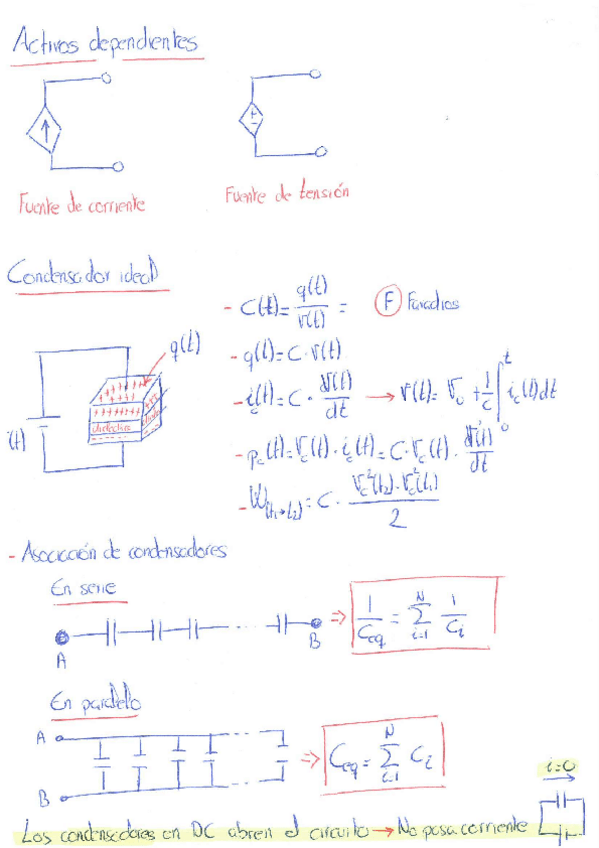 Activos dependientes
Fuente de corriente
Fuente de tensión
Condensador ideal
q(t)
dieléctrico
(t)
- C(t) = q(t)/v(t) = (F) Faradios
- q(t) = C · v(t)
- i_c(t) = C · dV(t)/dt → v(t) = V_0 + 1/C ∫_0^t i_c(t) dt
- p_c(t) = V_c(t) · i_c(t) = C · V_c(t) · dV(t)/dt
- W_(t_1→t_2) = C · V_c²(t_2) · V_c²(t_1) / 2
- Asociación de condensadores
En serie
A B ⇒ 1/C_eq = Σ_{i=1}^N 1/C_i
En paralelo
A
B
⇒ C_eq = Σ_{i=1}^N C_i
i=0
Los condensadores en DC abren el circuito → No pasa corriente